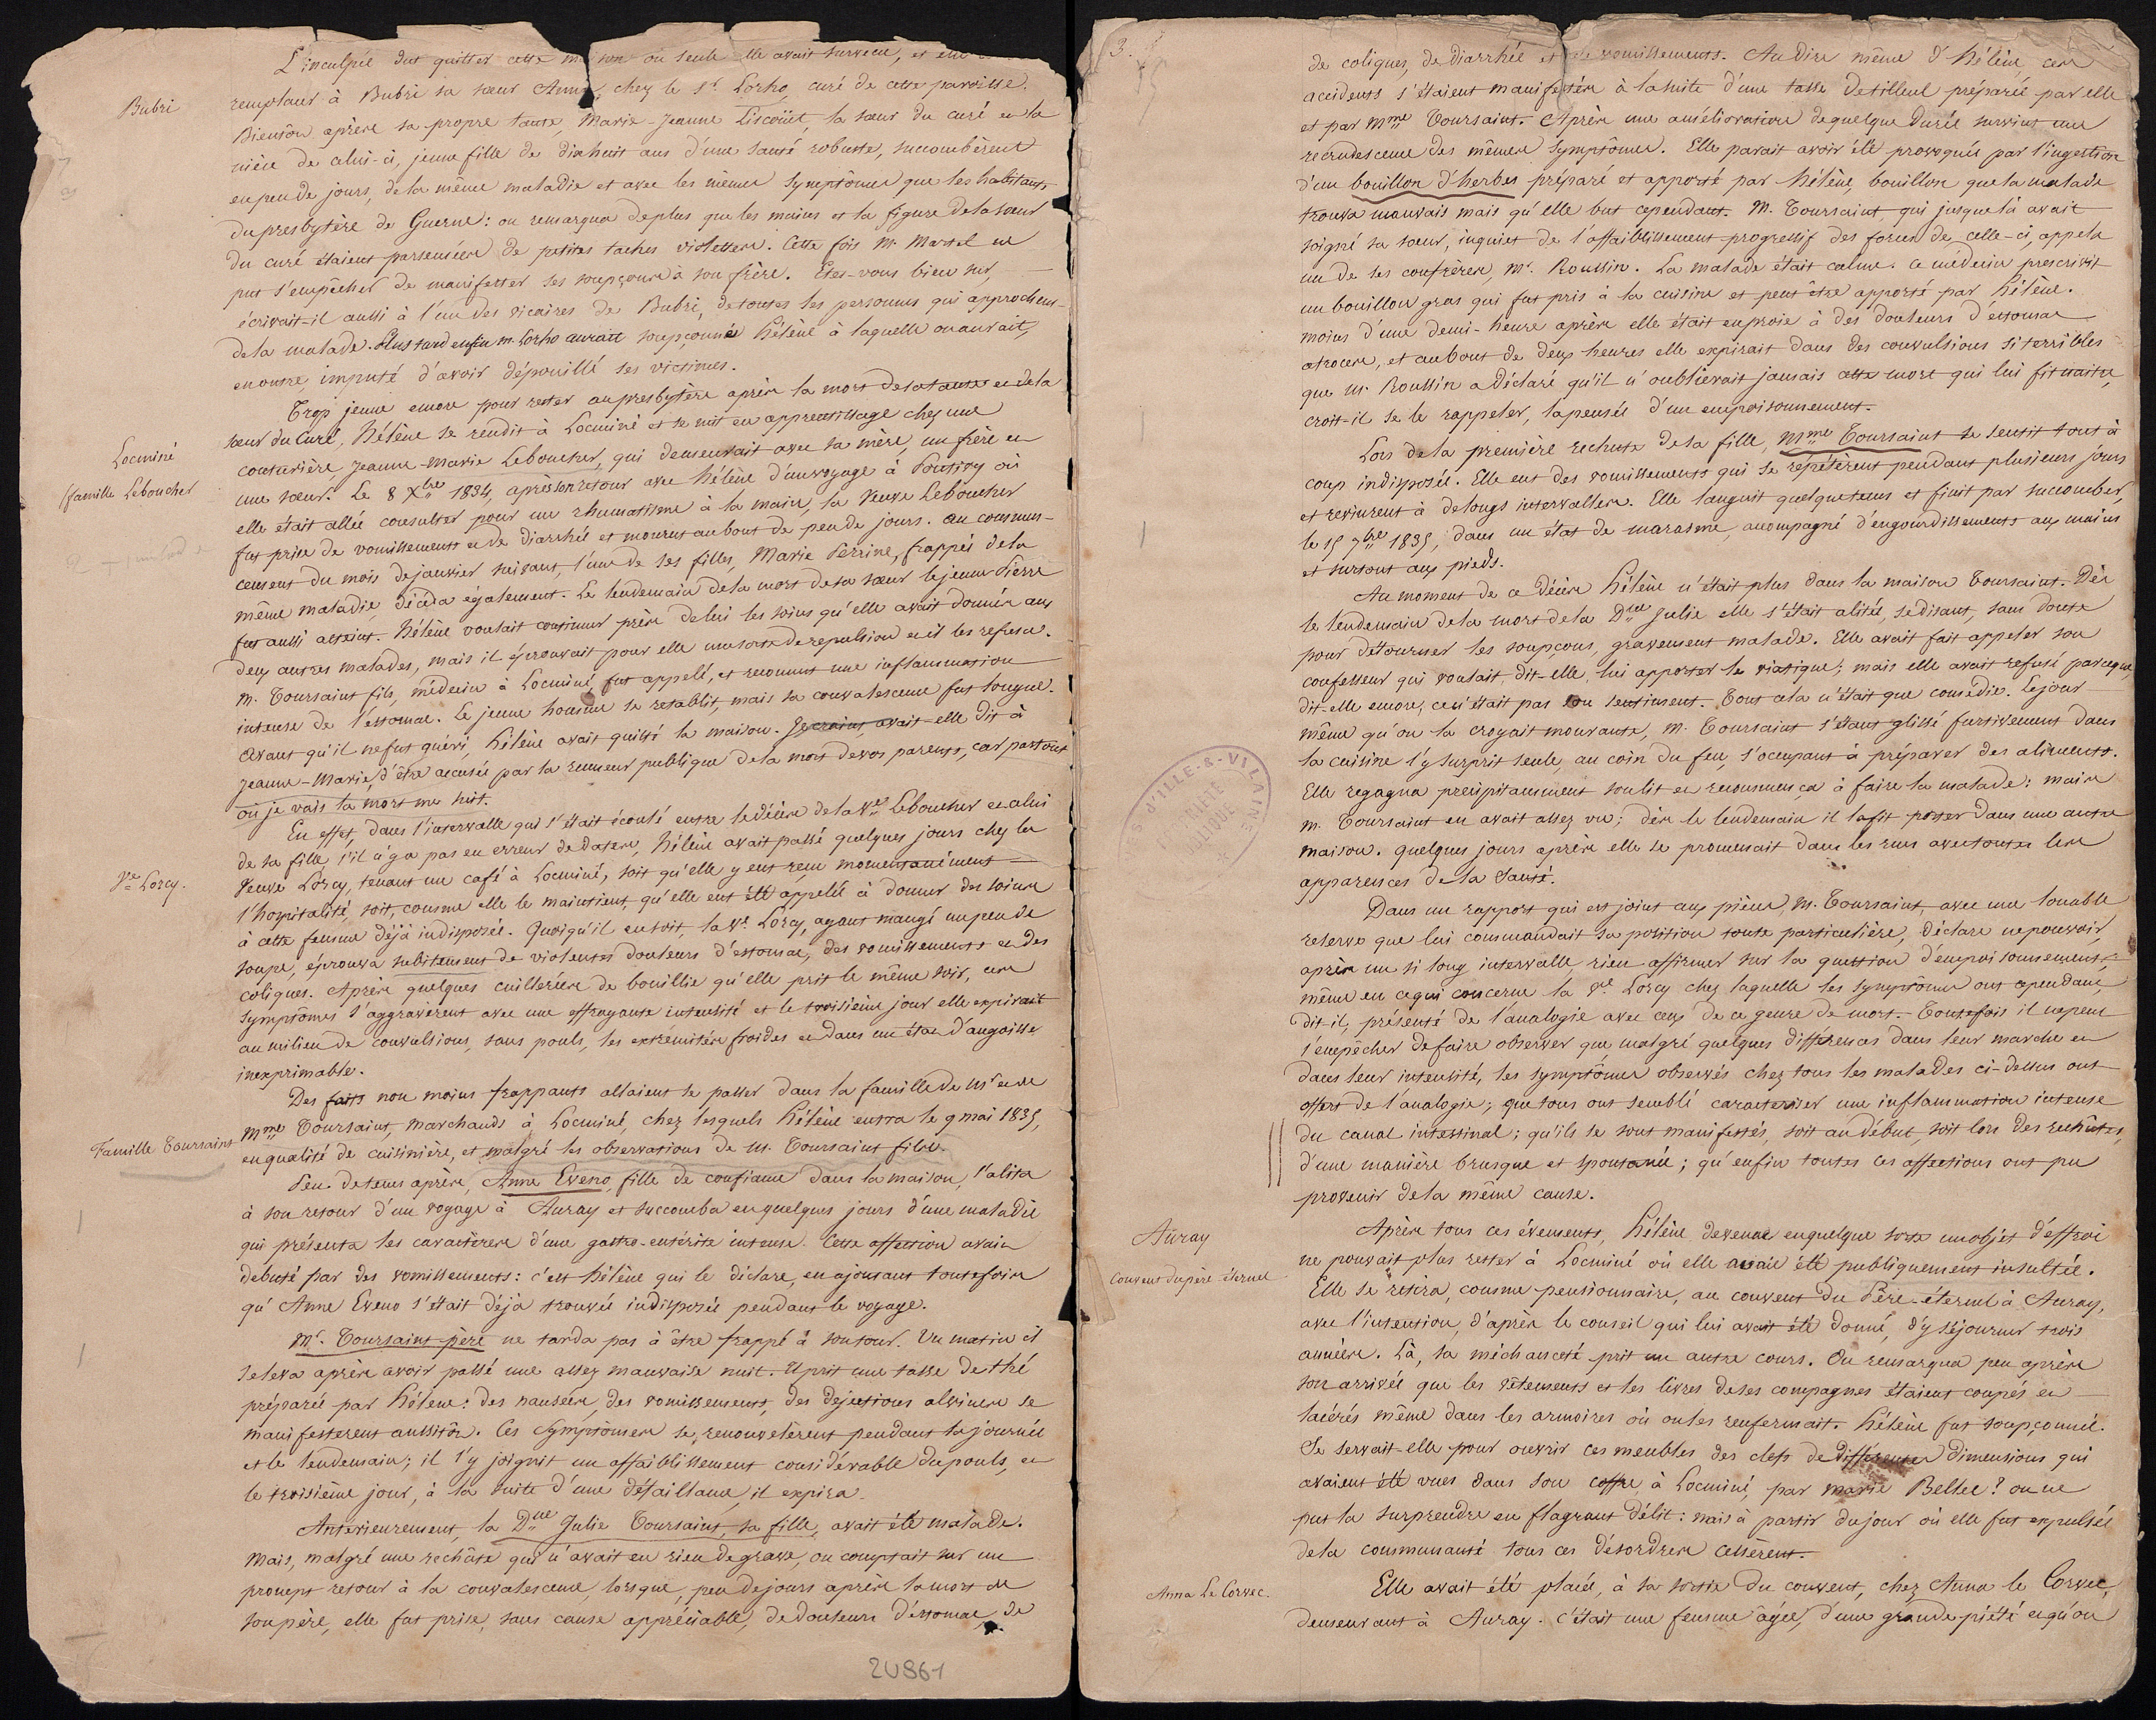 L'inculpée dut quitter cette maison où seule elle avait survécu, et elle
Bubri
remplacer à Bubri sa sœur Anna, chez le Sr. Lorho, curé de cette paroisse.
Bientôt après sa propre tante, Marie-Jeanne Liscoüët, la sœur du curé et la
nièce de celui-ci, jeune fille de dixhuit ans d'une santé robuste, succombèrent
en peu de jours, de la même maladie et avec les mêmes symptômes que les habitants
du presbytère de Guerne: on remarqua de plus que les mains et la figure de la sœur
du curé étaient parsemées de petites taches violettes. Cette fois Mr. Martel ne
put s'empêcher de manifester ses soupçons à son frère. Etes-vous bien sur,
écrivait-il aussi à l'un des vicaires de Bubri, de toutes les personnes qui approchent
de la malade. Plus tard enfin m. Lorho aurait soupçonné Hélène à laquelle on aurait,
en outre, imputé d'avoir dépouillé ses victimes.
Trop jeune encore pour rester au presbytère après la mort de la tante et de la
sœur du Curé, Hélène se rendit à Locminé et se mit en apprentissage chez une
Locminé
couturière, Jeanne-Marie Leboucher, qui demeurait avec sa mère, un frère et
famille Leboucher
une sœur. Le 8 Xbre 1834, après son retour avec Hélène d'un voyage à Pontivy où
elle était allée consulter pour un rhumatisme à la main, la Veuve Leboucher
fut prise de vomissements et de diarrhée et mourut au bout de peu de jours. Au commen-
cement du mois de janvier suivant, l'une de ses filles, Marie Perrine, frappée de la
même maladie, décéda également. Le lendemain de la mort de sa sœur le jeune Pierre
fut aussi atteint. Hélène voulait continuer près de lui les soins qu'elle avait donnés aux
deux autres malades, mais il éprouvait pour elle une sorte de répulsion et il les refusa.
M. Toursaint fils, médecin à Locminé, fut appelé, et reconnut une inflammation
intense de l'estomac. Le jeune homme se rétablit, mais sa convalescence fut longue.
Avant qu'il ne fut guéri, Hélène avait quitté la maison. Je crains, avait-elle dit à
Jeanne-Marie, d'être accusée par la rumeur publique de la mort de vos parents, car partout
où je vais la mort me suit.
En effet, dans l'intervalle qui s'était écoulé entre le décès de la Ve. Leboucher et celui
de sa fille, s'il n'y a pas eu erreur de dates, Hélène avait passé quelques jours chez la
Ve Lorcy.
Veuve Lorcy, tenant un café à Locminé, soit qu'elle y eut reçu momentanément
l'hospitalité, soit, comme elle le maintient, qu'elle eut été appelée à donner des soins
à cette femme déjà indisposée. Quoiqu'il en soit, la Ve. Lorcy, ayant mangé un peu de
soupe, éprouva subitement de violentes douleurs d'estomac, des vomissements et des
coliques. Après quelques cuillerées de bouillie qu'elle prit le même soir, ces
symptômes s'aggravèrent avec une effrayante intensité et le troisième jour elle expirait
au milieu de convulsions, sans pouls, les extrémités froides et dans un état d'angoisse
inexprimable.
Des faits non moins frappants allaient se passer dans la famille de Mr et de
Famille Toursaint
Mme Toursaint, marchands à Locminé, chez lesquels Hélène entra le 9 mai 1835,
en qualité de cuisinière, et malgré les observations de M. Toursaint fils.
Peu de tems après, Anne Eveno, fille de confiance dans la maison, s'alita
à son retour d'un voyage à Auray et succomba en quelques jours d'une maladie
qui présenta les caractères d'une gastro-entérite intense. Cette affection avait
débuté par des vomissements: c'est Hélène qui le déclare, en ajoutant toutefois
qu'Anne Eveno s'était déjà trouvée indisposée pendant le voyage.
Mr. Toursaint père ne tarda pas à être frappé à son tour. Un matin il
se leva après avoir passé une assez mauvaise nuit. Il prit une tasse de thé
préparée par Hélène: des nausées, des vomissements, des déjections alvines se
manifesterent aussitôt. Ces symptômes se renouvelèrent pendant la journée
et le lendemain; il s'y joignit un affaiblissement considérable du pouls, et
le troisième jour, à la suite d'une défaillance, il expira.
Antérieurement, la Dlle Julie Toursaint, sa fille, avait été malade.
Mais, malgré une rechûte qui n'avait eu rien de grave, on comptait sur un
prompt retour à la convalescence, lorsque, peu de jours après la mort de
son père, elle fut prise, sans cause appréciable, de douleurs d'estomac, de
20861
3.
de coliques, de diarrhée et de vomissements. Au dire même d'Hélène ces
accidents s'étaient manifestés à la suite d'une tasse de tilleul préparée par elle
et par Mme Toursaint. Après une amélioration de quelque durée survint une
recrudescence des mêmes symptômes. Elle parait avoir été provoquée par l'ingestion
d'un bouillon d'herbes préparé et apporté par Hélène, bouillon que la malade
trouva mauvais mais qu'elle but cependant. M. Toursaint, qui jusque là avait
soigné sa sœur, inquiet de l'affaiblissement progressif des forces de celle-ci, appela
un de ses confrères, Mr. Roussin. La malade était calme. Ce médecin prescrivit
un bouillon gras qui fut pris à la cuisine et peut être apporté par Hélène.
moins d'une demi-heure après elle était en proie à des douleurs d'estomac
atroces, et au bout de deux heures elle expirait dans des convulsions si terribles
que M. Roussin a déclaré qu'il n'oublierait jamais cette mort qui lui fit naitre,
croit-il se le rappeler, la pensée d'un empoisonnement.
Lors de la première rechute de sa fille, Mme Toursaint se sentit tout à
coup indisposée. Elle eut des vomissements qui se répétèrent pendant plusieurs jours
et revinrent à de longs intervalles. Elle languit quelque tems et finit par succomber,
le 15 7bre 1835, dans un état de marasme, accompagné d'engourdissements aux mains
et surtout aux pieds.
Au moment de ce décès Hélène n'était plus dans la maison Toursaint. Dès
le lendemain de la mort de la Dlle Julie elle s'était alitée, se disant, sans doute
pour détourner les soupçons, gravement malade. Elle avait fait appeler son
confesseur qui voulait, dit-elle, lui apporter le viatique; mais elle avait refusé parceque,
dit-elle encore, ce n'était pas son sentiment. Tout cela n'était que comédie. Le jour
même qu'on la croyait mourante, M. Toursaint s'étant glissé furtivement dans
la cuisine l'y surprit seule, au coin du feu, s'occupant à préparer des aliments.
Elle regagna précipitamment son lit et recommença à faire la malade: mais
M. Toursaint en avait assez vu; dès le lendemain il la fit porter dans une autre
maison. quelques jours après elle se promenait dans les rues avec toutes les
apparences de la santé.
Dans un rapport qui est joint aux pièces, M. Toursaint, avec une louable
reserve que lui commandait sa position toute particulière, déclare ne pouvoir,
après un si long intervalle, rien affirmer sur la question d'empoisonnement,
même en ce qui concerne la Ve. Lorcy chez laquelle les symptômes ont cependant,
dit-il, présenté de l'analogie avec ceux de ce genre de mort. Toutefois il ne peut
s'empêcher de faire observer que malgré quelques différences dans leur marche et
dans leur intensité, les symptômes observés chez tous les malades ci-dessus ont
offert de l'analogie; que tous ont semblé caractériser une inflammation intense
du canal intestinal; qu'ils se sont manifestés, soit au début, soit lors des rechûtes,
d'une manière brusque et spontanée; qu'enfin toutes ces affections ont pu
provenir de la même cause.
Auray
Après tous ces évements, Hélène devenue en quelque sorte un objet d'effroi
Couvent du père éternel
ne pouvait plus rester à Locminé où elle avait été publiquement insultée.
Elle se retira, comme pensionnaire, au couvent du Père-éternel à Auray,
avec l'intention, d'après le conseil qui lui avait été donné, d'y séjourner trois
années. Là, sa méchanceté prit un autre cours. On remarqua peu après
son arrivée que les vêtements et les livres de ses compagnes étaient coupés et
lacérés même dans les armoires où on les renfermait. Hélène fut soupçonnée.
Se servait-elle pour ouvrir ces meubles des clefs de différentes dimensions qui
avaient été vues dans son coffre, à Locminé, par marie Bellec? on ne
put la surprendre en flagrant délit: mais à partir du jour où elle fut expulsée
de la communauté tous ces désordres cessèrent.
Anna Le Corvec.
Elle avait été placée, à sa sortie du couvent, chez Anna le Corvec,
demeurant à Auray. C'était une femme âgée, d'une grande piété et qu'on